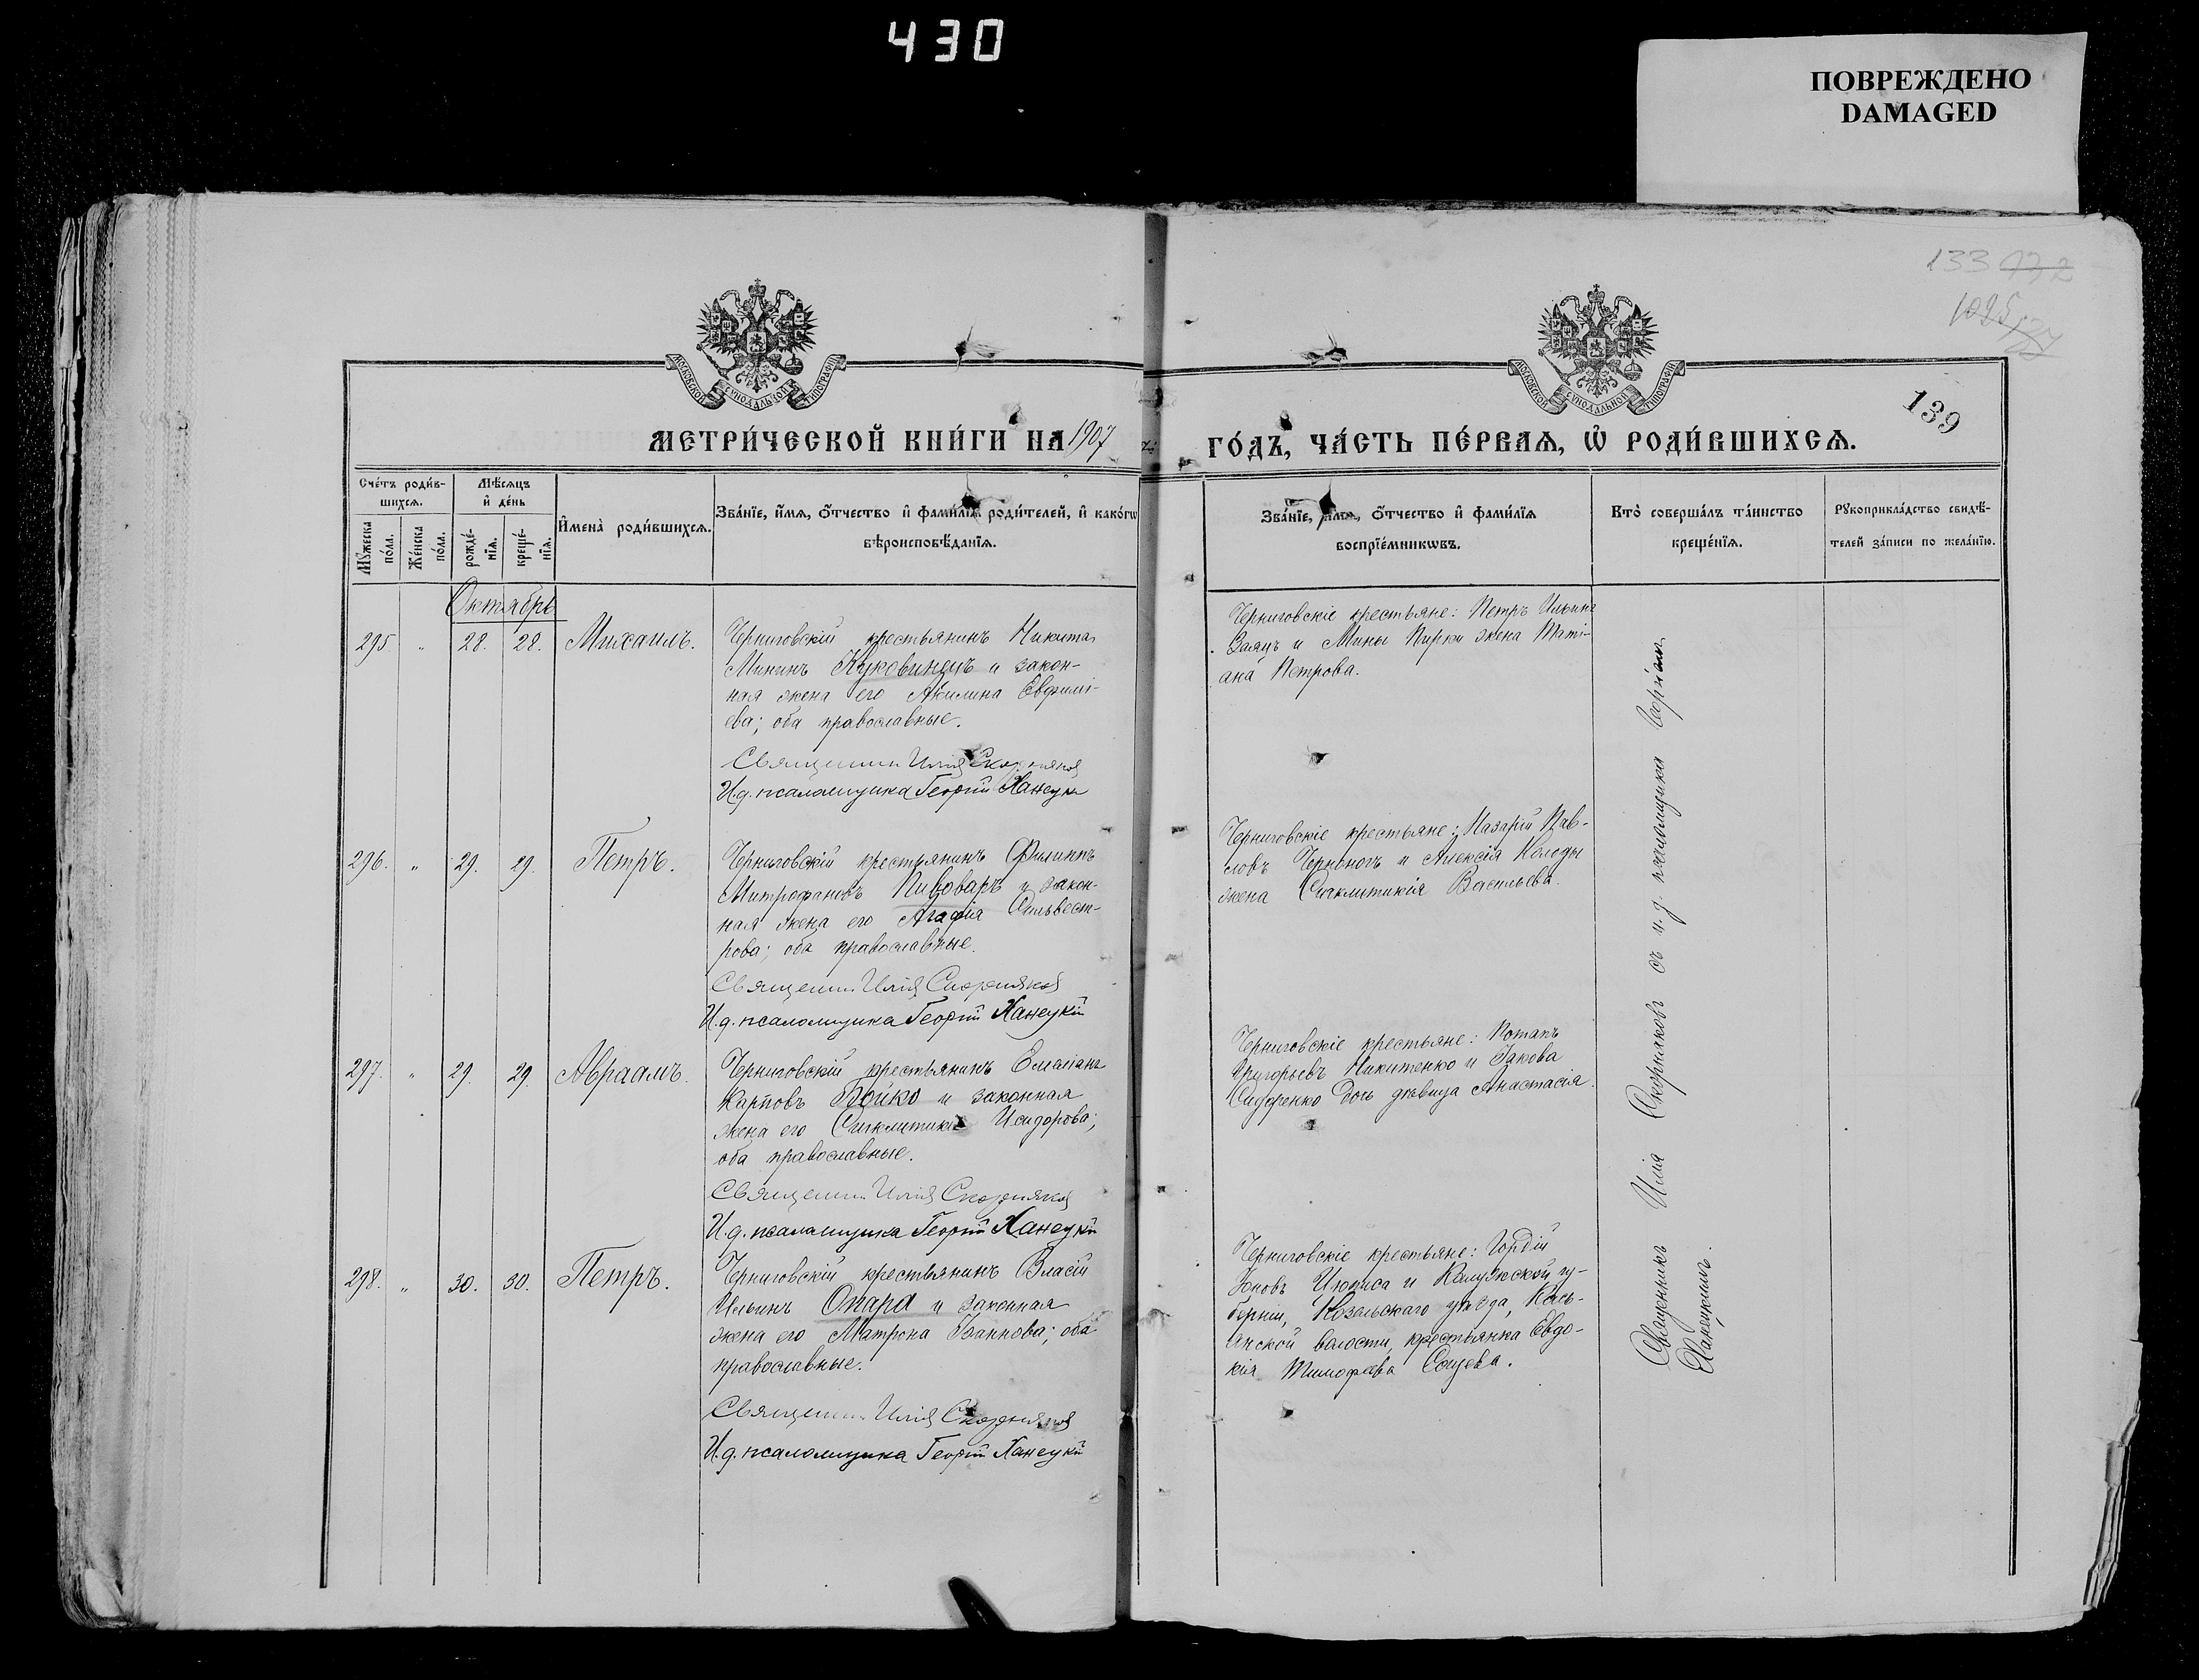 430
ПОВРЕЖДЕНО
DAMAGED
133 132
1025
139
МОСКОВСКОЙ СУНОДАЛЬНОЙ ТИПОГРАФІИ
МОСКОВСКОЙ СУНОДАЛЬНОЙ ТИПОГРАФІИ
МЕТРИ́ЧЕСКОЙ КНИ́ГИ НА 1907
ГО́ДЪ, ЧА́СТЬ ПЕ́РВАѦ, Ѡ҆ РОДИ́ВШИХСѦ.
Сче́тъ роди́в-
шихсѧ.
Мѣ́сѧцъ
и҆ де́нь
Мꙋ́жеска
по́ла.
Же́нска
по́ла.
рожде́-
нїѧ.
креще́-
нїѧ.
И҆мена̀ роди́вшихсѧ.
Зва́нїе, и҆́мѧ, ѻ҆́тчество и҆ фами́лїѧ роди́телей, и҆ како́гѡ
вѣроисповѣ́данїѧ.
Зва́нїе, и҆́мѧ, ѻ҆́тчество и҆ фами́лїѧ
воспрїе́мникѡвъ.
Кто̀ соверша́лъ та́инство
креще́нїѧ.
Рꙋкоприкла́дство свидѣ́-
телей за́писи по жела́нїю.
Октябрь
295. " 28. 28. Михаилъ.
Черниговскій крестьянинъ Никита
Мининъ Куковинецъ и закон-
ная жена его Акилина Евфимі-
ева; оба православные.
Священникъ Илія Скорняковъ
И.д. псаломщика Георгій Ханецкій
Черниговскіе крестьяне: Петръ Ильинъ
Заяцъ и Мины Пирки жена Таті-
ана Петрова.
296. " 29. 29. Петръ.
Черниговскій крестьянинъ Филиппъ
Митрофановъ Пивоваръ и закон-
ная жена его Агафія Сильвест-
рова; оба православные.
Священникъ Илія Скорняковъ
И.д. псаломщика Георгій Ханецкій
Черниговскіе крестьяне: Назарій Пав-
ловъ Черноногъ и Алексія Колоды
жена Сигклитикія Васильева.
297. " 29. 29. Авраамъ.
Черниговскій крестьянинъ Емеліанъ
Карповъ Бойко и законная
жена его Сигклитикія Исидорова;
оба православные.
Священникъ Илія Скорняковъ
И.д. псаломщика Георгій Ханецкій
Черниговскіе крестьяне: Потапъ
Григорьевъ Никитенко и Іакова
Сидоренко дочь дѣвица Анастасія.
298. " 30. 30. Петръ.
Черниговскій крестьянинъ Власій
Ильинъ Опара и законная
жена его Матрона Іоаннова; оба
православные.
Священникъ Илія Скорняковъ
И.д. псаломщика Георгій Ханецкій
Черниговскіе крестьяне: Гордій
Іоновъ и Калужской гу-
берніи, Козельскаго уѣзда, Касъ-
янской волости, крестьянка Евдо-
кія Тимофеева
Священникъ Илія Скорняковъ съ и.д. псаломщика Георгіемъ
Ханецкимъ.